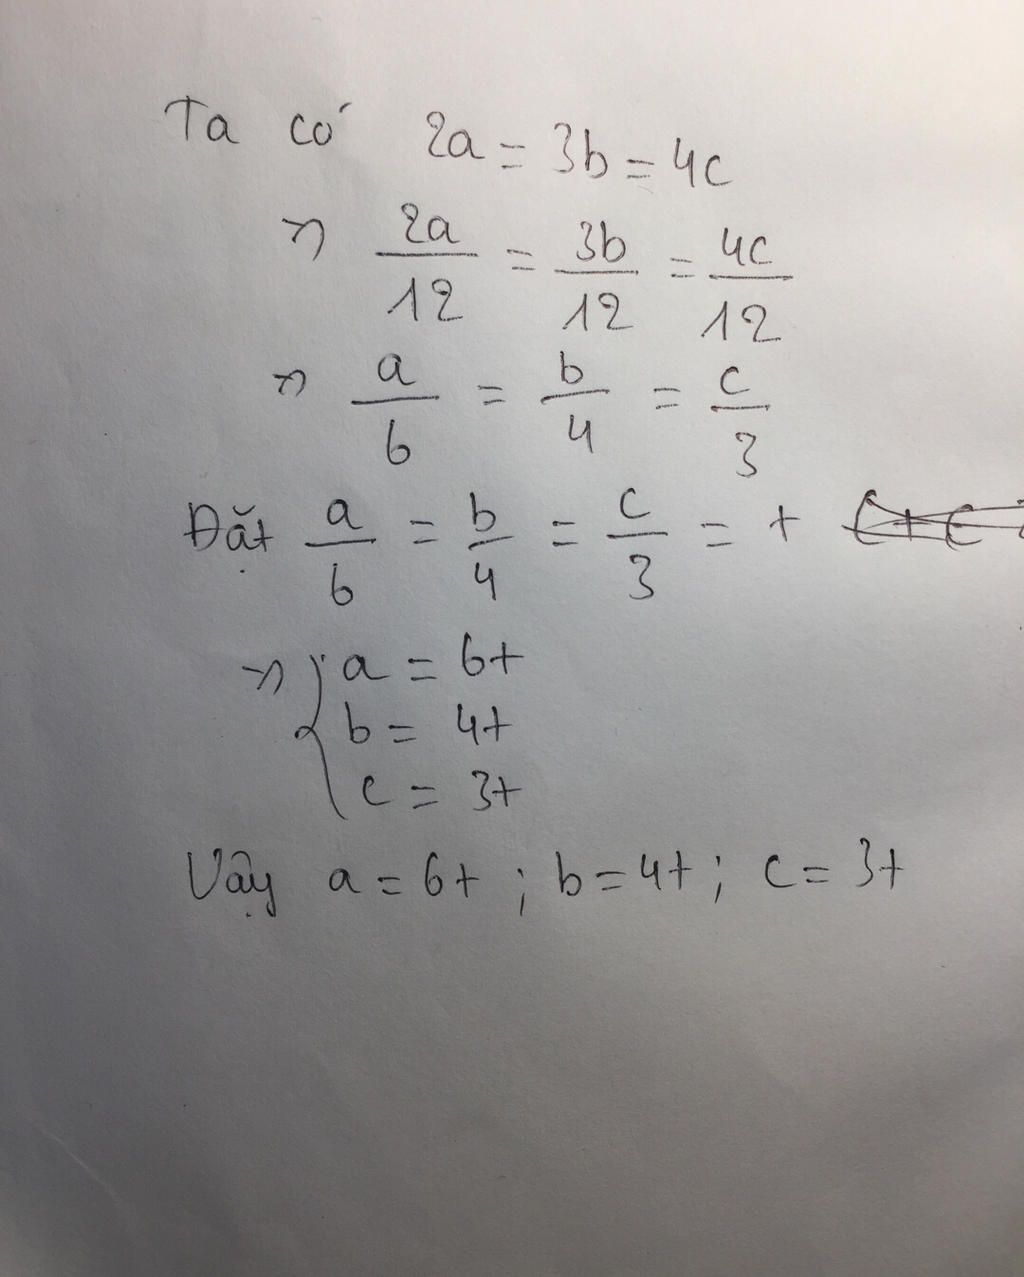 Ta có 2a = 3b = 4c
=> 2a/12 = 3b/12 = 4c/12
=> a/6 = b/4 = c/3
Đặt a/6 = b/4 = c/3 = t
=> { a = 6t
b = 4t
c = 3t
Vậy a = 6t ; b = 4t ; c = 3t